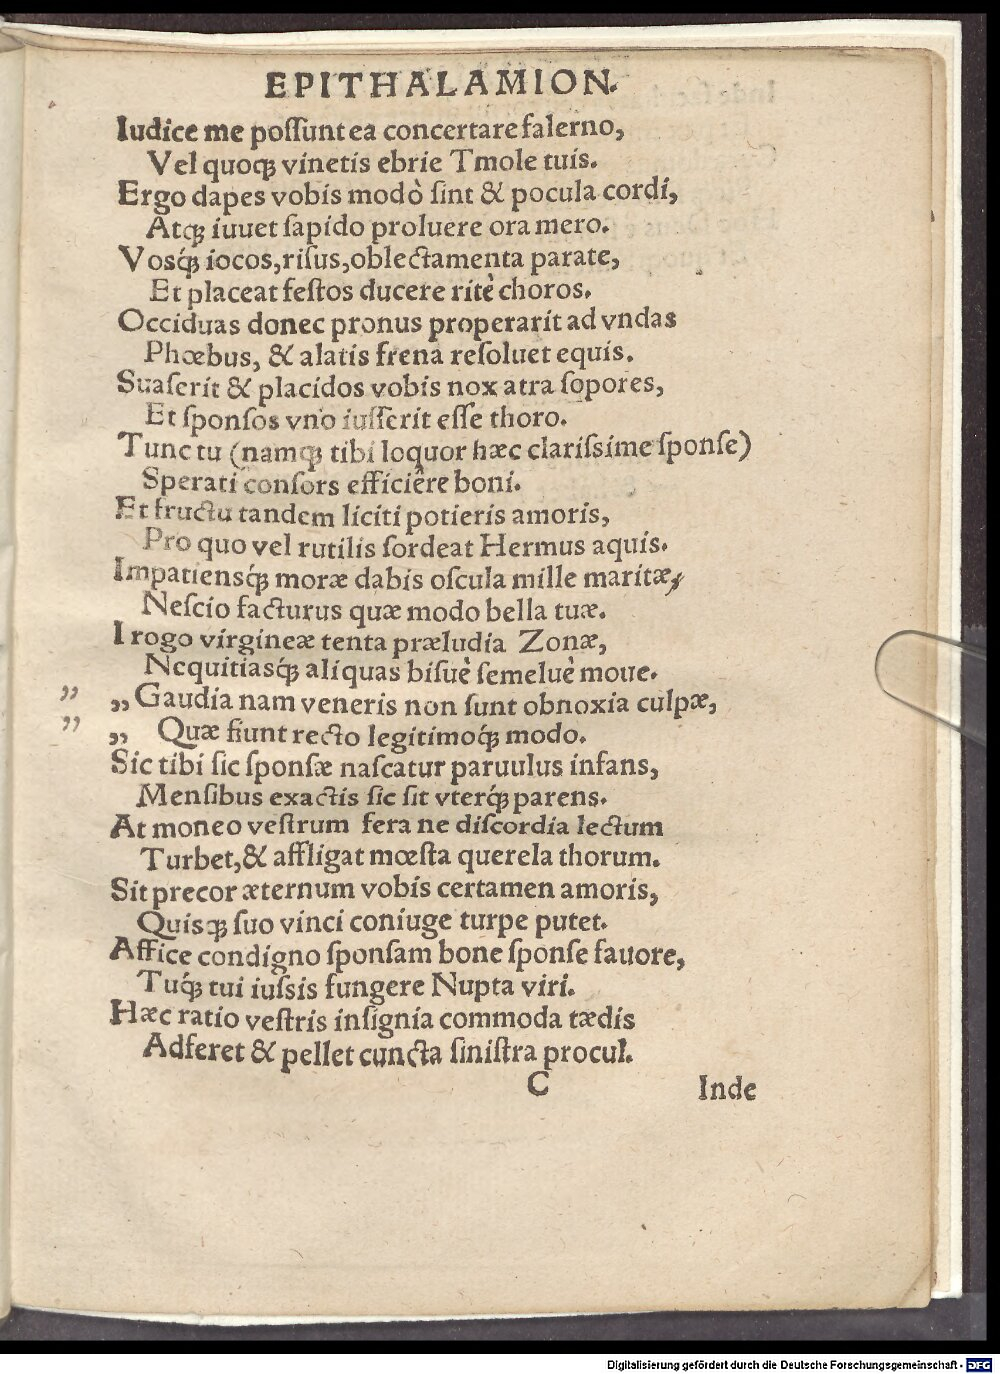 EPITHALAMION.
Iudice me poſſunt ea concertare falerno,
Vel quoqꝫ vinetis ebrie Tmole tuis.
Ergo dapes vobis modò ſint & pocula cordi,
Atqꝫ iuuet ſapido proluere ora mero.
Vosq́ꝫ iocos, riſus, oblectamenta parate,
Et placeat feſtos ducere ritè choros.
Occiduas donec pronus properarit ad vndas
Phœbus, & alatis frena reſoluet equis.
Suaſerit & placidos vobis nox atra ſopores,
Et ſponſos vno iuſſerit eſſe thoro.
Tunc tu (namqꝫ tibi loquor hæc clariſsime ſponſe)
Sperati conſors efficiêre boni.
Et fructu tandem liciti potieris amoris,
Pro quo vel rutilis ſordeat Hermus aquis.
Impatiensq́ꝫ moræ dabis oſcula mille maritæ,
Neſcio facturus quæ modo bella tuæ.
I rogo virgineæ tenta præludia Zonæ,
Nequitiasq́ꝫ aliquas biſuè ſemeluè moue.
„ „ Gaudia nam veneris non ſunt obnoxia culpæ,
„ „ Quæ fiunt recto legitimoq́ꝫ modo.
Sic tibi ſic ſponſæ naſcatur paruulus infans,
Menſibus exactis ſic ſit vterq́ꝫ parens.
At moneo veſtrum fera ne diſcordia lectum
Turbet, & affligat mœſta querela thorum.
Sit precor æternum vobis certamen amoris,
Quisqꝫ ſuo vinci coniuge turpe putet.
Affice condigno ſponſam bone ſponſe fauore,
Tuq́ꝫ tui iuſsis fungere Nupta viri.
Hæc ratio veſtris inſignia commoda tædis
Adferet & pellet cuncta ſiniſtra procul.
C Inde
Digitalisierung gefördert durch die Deutsche Forschungsgemeinschaft - DFG